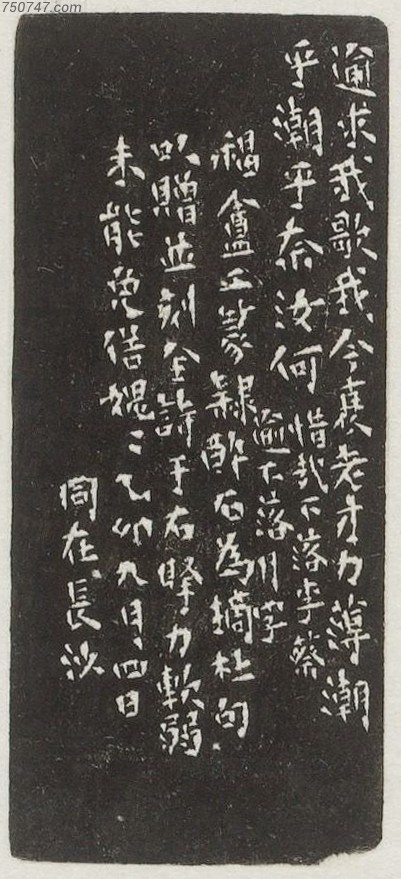 逾求我歌我今衰老才力薄潮
乎潮乎奈汝何 惜哉下落李蔡
逾下落月字
盦工篆隸醉石為摘杜句
以贈並刻全詩于石堅力軟弱
未能免俗媿〻乙卯九月四日
同在長沙
750747.com